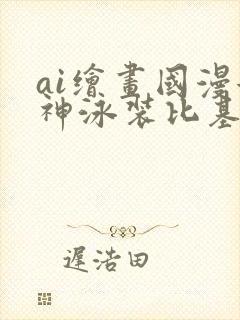 ai繪畫國漫
神泳裝比基
遲浩田